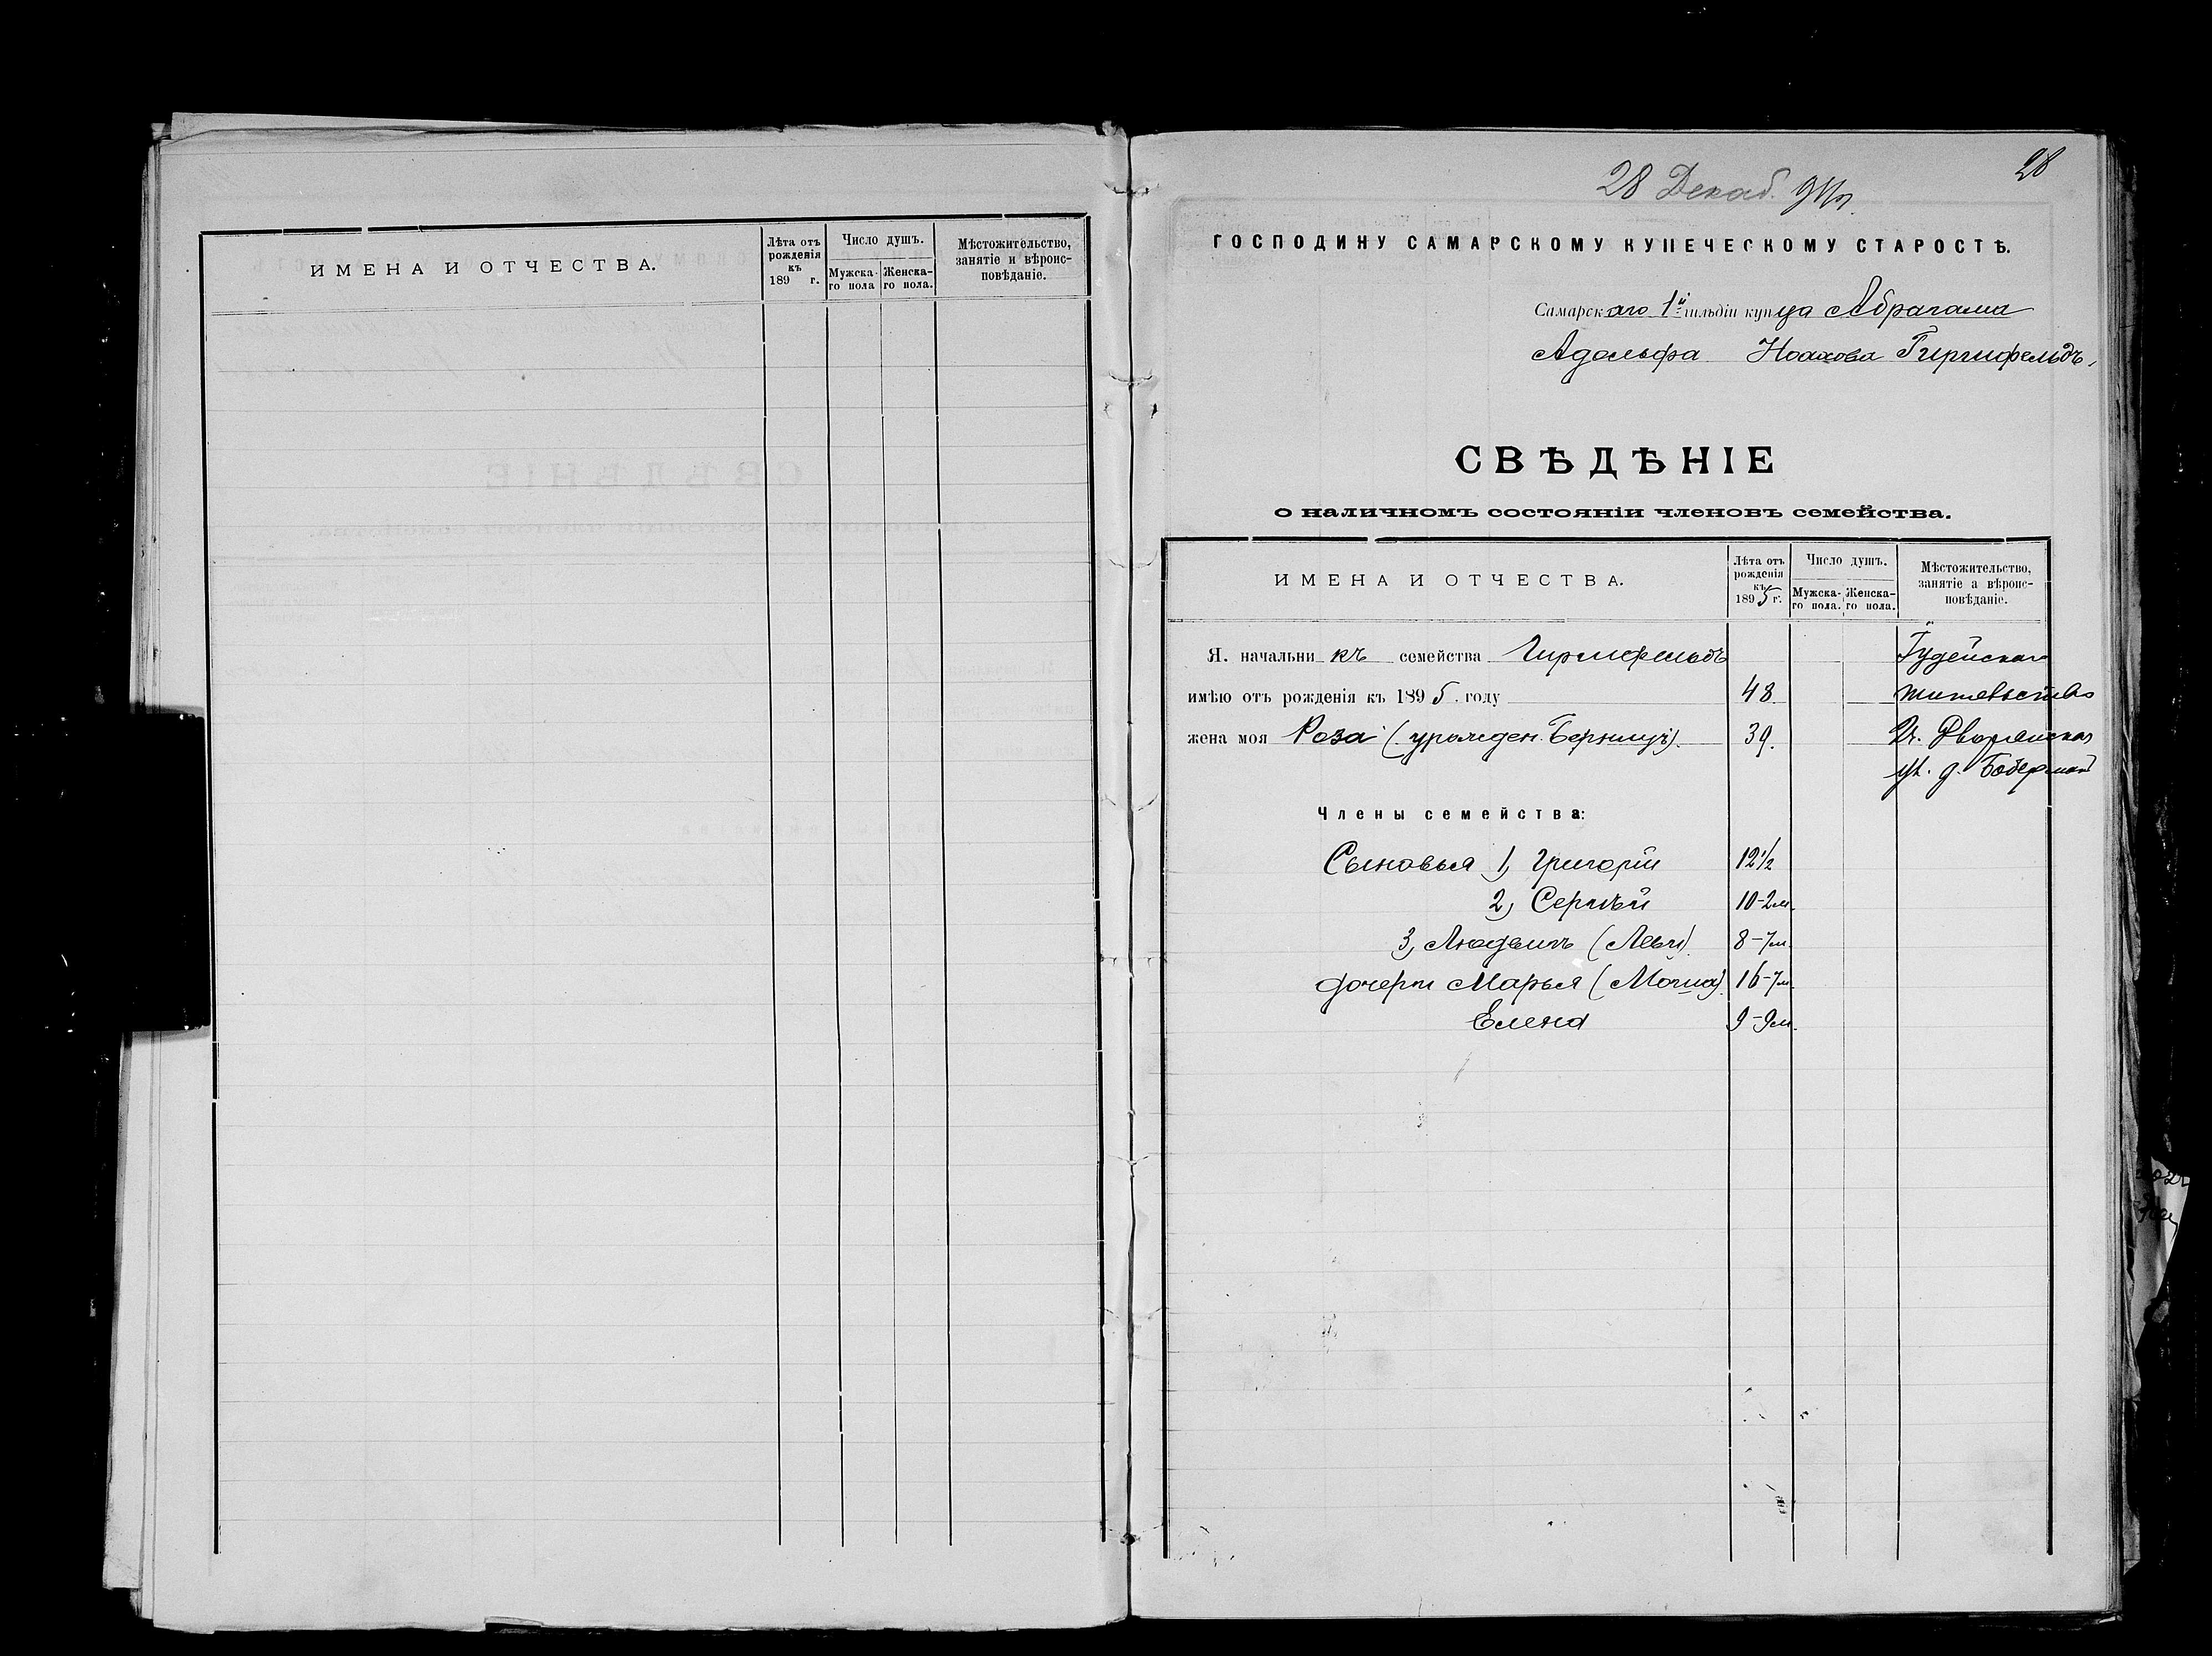 ИМЕНА И ОТЧЕСТВА.
Лѣта отъ рожденія къ 189 г.
Число душъ.
Мужска-го пола
Женска-го пола.
Мѣстожительство, занятіе и вѣроис-повѣданіе.
28
28 Декаб. 94 г.
ГОСПОДИНУ САМАРСКОМУ КУПЕЧЕСКОМУ СТАРОСТѢ.
Самарскаго 1й гильдіи купца Абрагама
Адольфа Ноахова Гиршфельдъ,
СВѢДѢНІЕ
о наличномъ состояніи членовъ семейства.
ИМЕНА И ОТЧЕСТВА.
Лѣта отъ рожденія къ 1895 г.
Число душъ.
Мужска-го пола.
Женска-го пола.
Мѣстожительство, занятіе а вѣроис-повѣданіе.
Я. начальникъ семейства Гиршфельдъ Іудейскаго
имѣю отъ рожденія къ 1895. году 48 жительство
жена моя Роза (урожден. ) 39. Дворянская
ул. д. Боберман
Члены семейства:
Сыновья 1, Григорій 12 1/2
2, Сергѣй 10-2м.
3, Людвигъ (Левъ) 8-7м.
дочери Марья 16-7м.
Елена 9-9м.